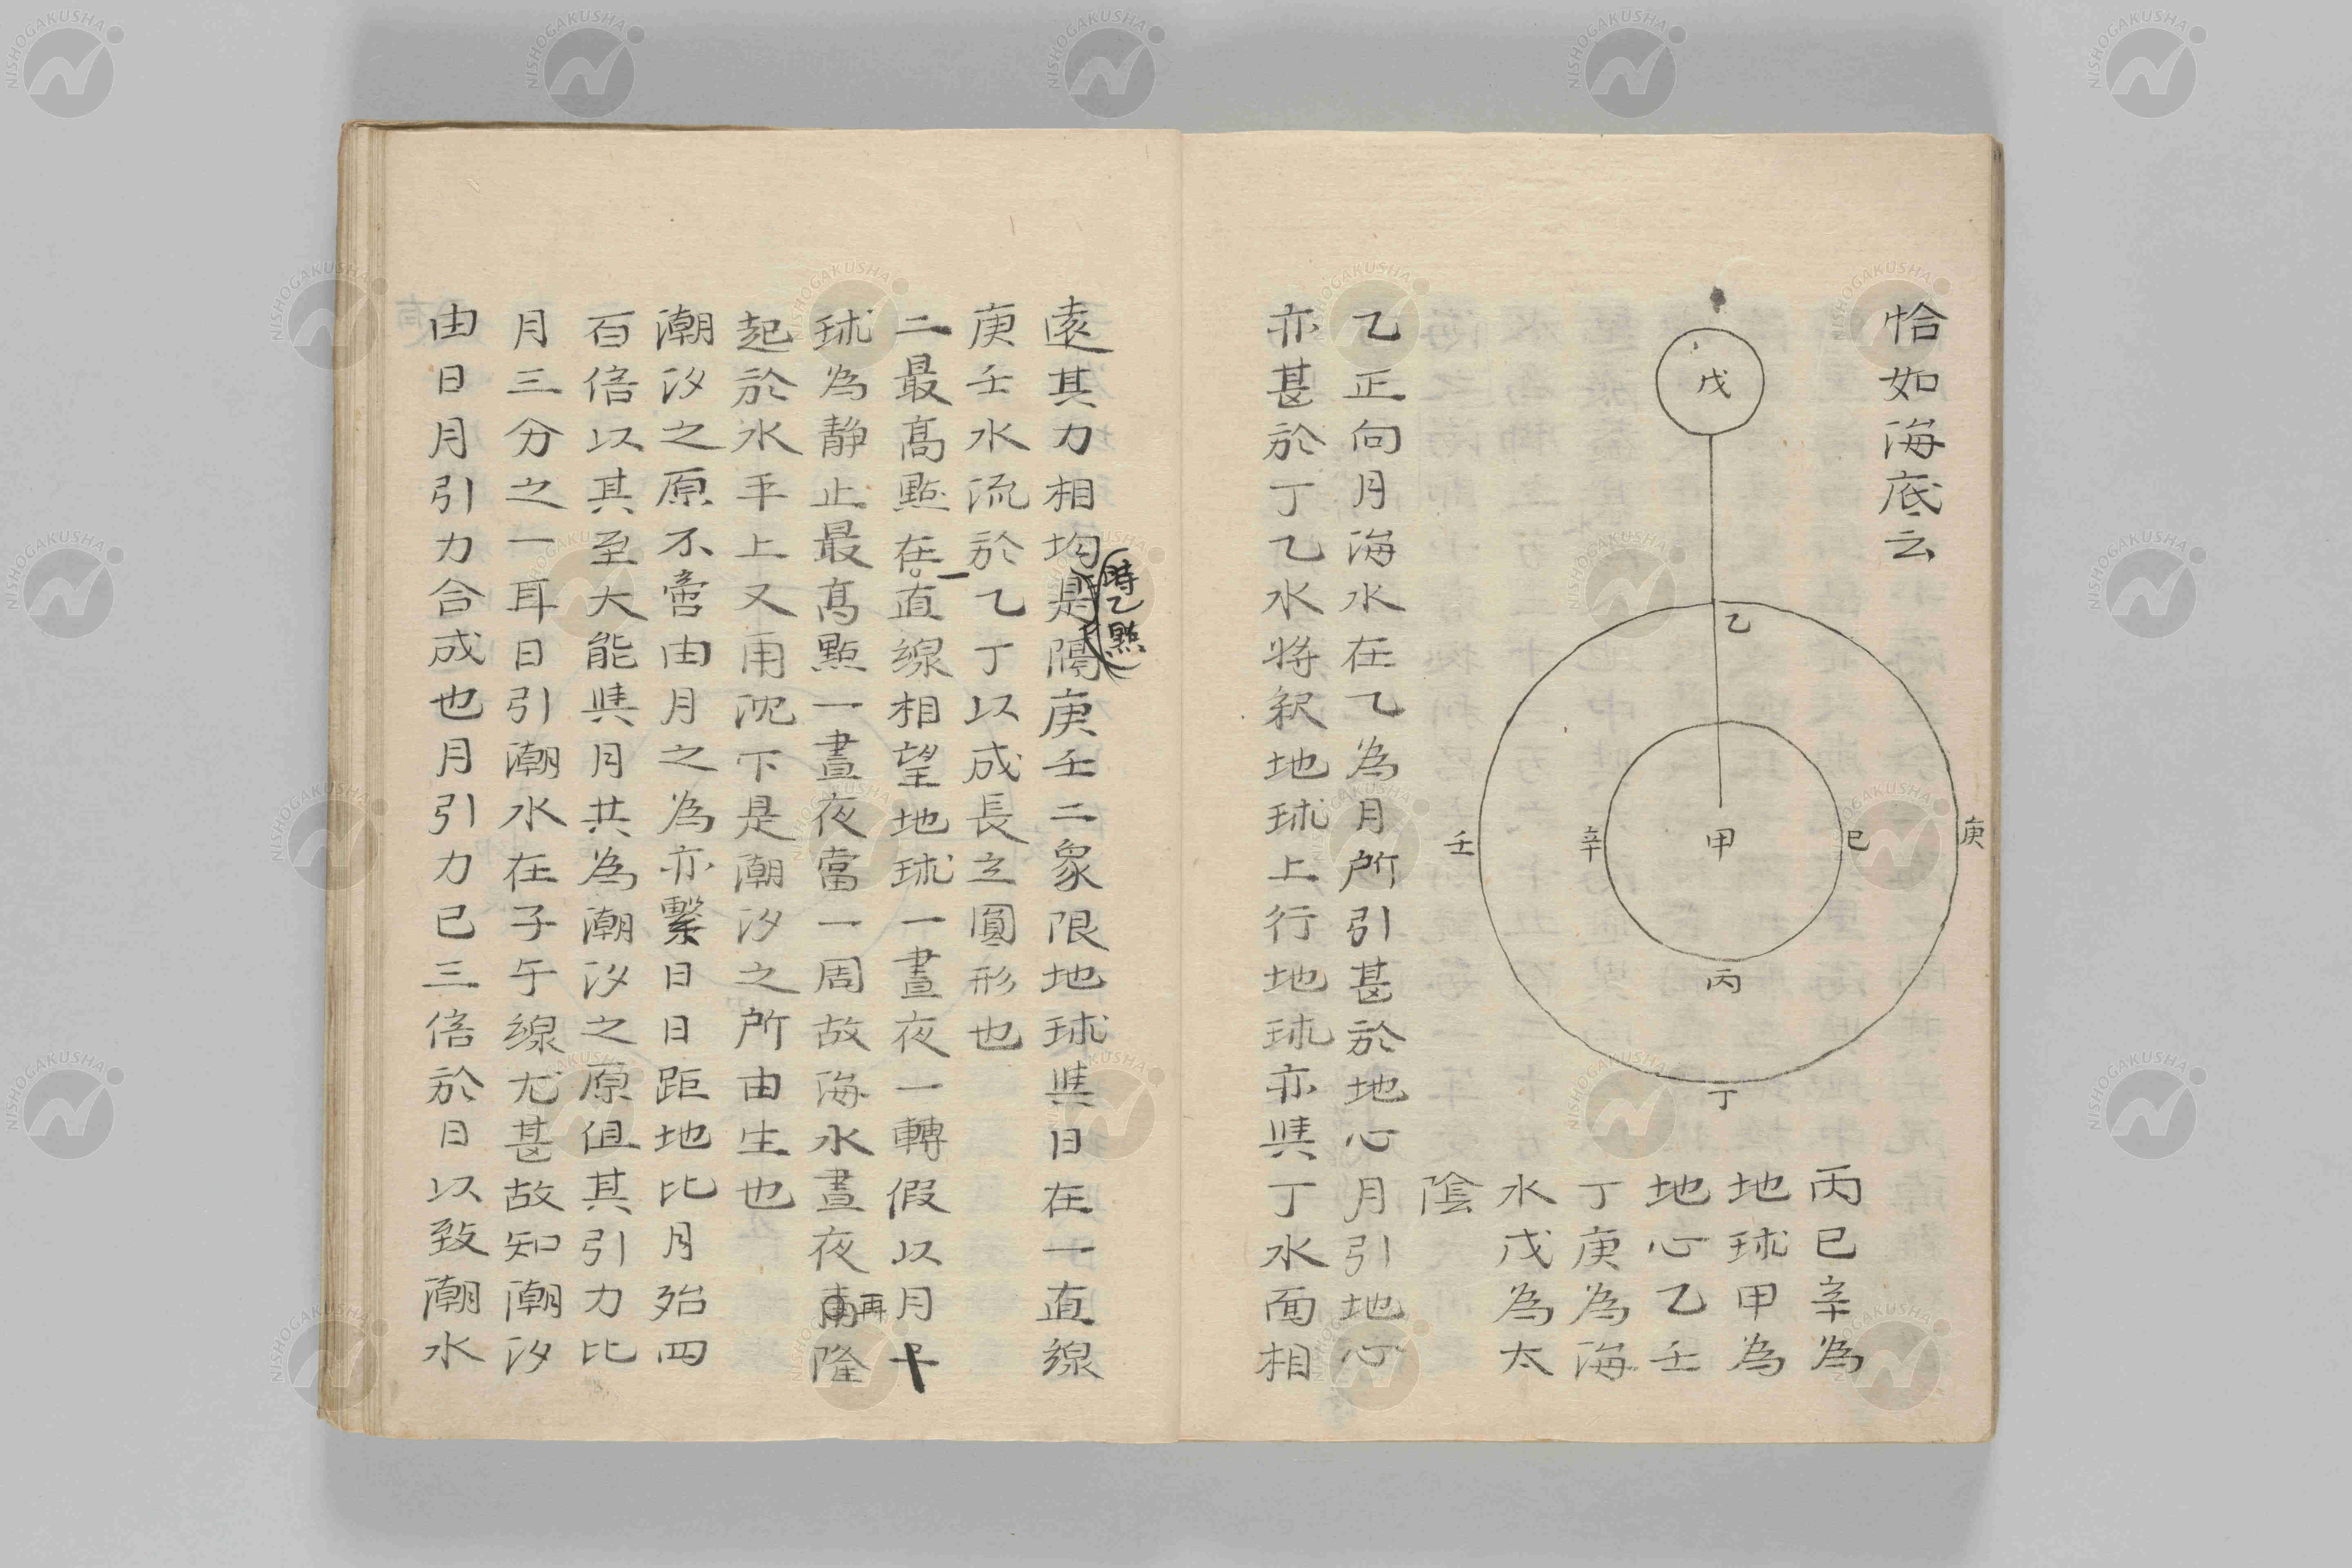 恰如海底云
戊
乙
庚
壬
辛
甲
巳
丙
丁
丙巳辛為
地球甲為
地心乙壬
丁庚為海
水戊為太
陰
乙正向月海水在乙為月所引甚於地心月引地心
亦甚於丁乙水将釈地球上行地球亦與丁水面相
遠其力相均是隔庚壬二象限地球與日在一直線
時乙點
庚壬水流於乙丁以成長立圓形也
二最高點在一直線相望地球一晝夜一轉假以月
球為靜止最高點一晝夜當一周故海水晝夜再隆
起於水平上又再沈下是潮汐之所由生也
潮汐之原不啻由月之為亦繫日日距地比月殆四
百倍以其至大能與月共為潮汐之原但其引力比
月三分之一耳日引潮水在子午線尤甚故知潮汐
由日月引力合成也月引力已三倍於日以致潮水
NISHOGAKUSHA